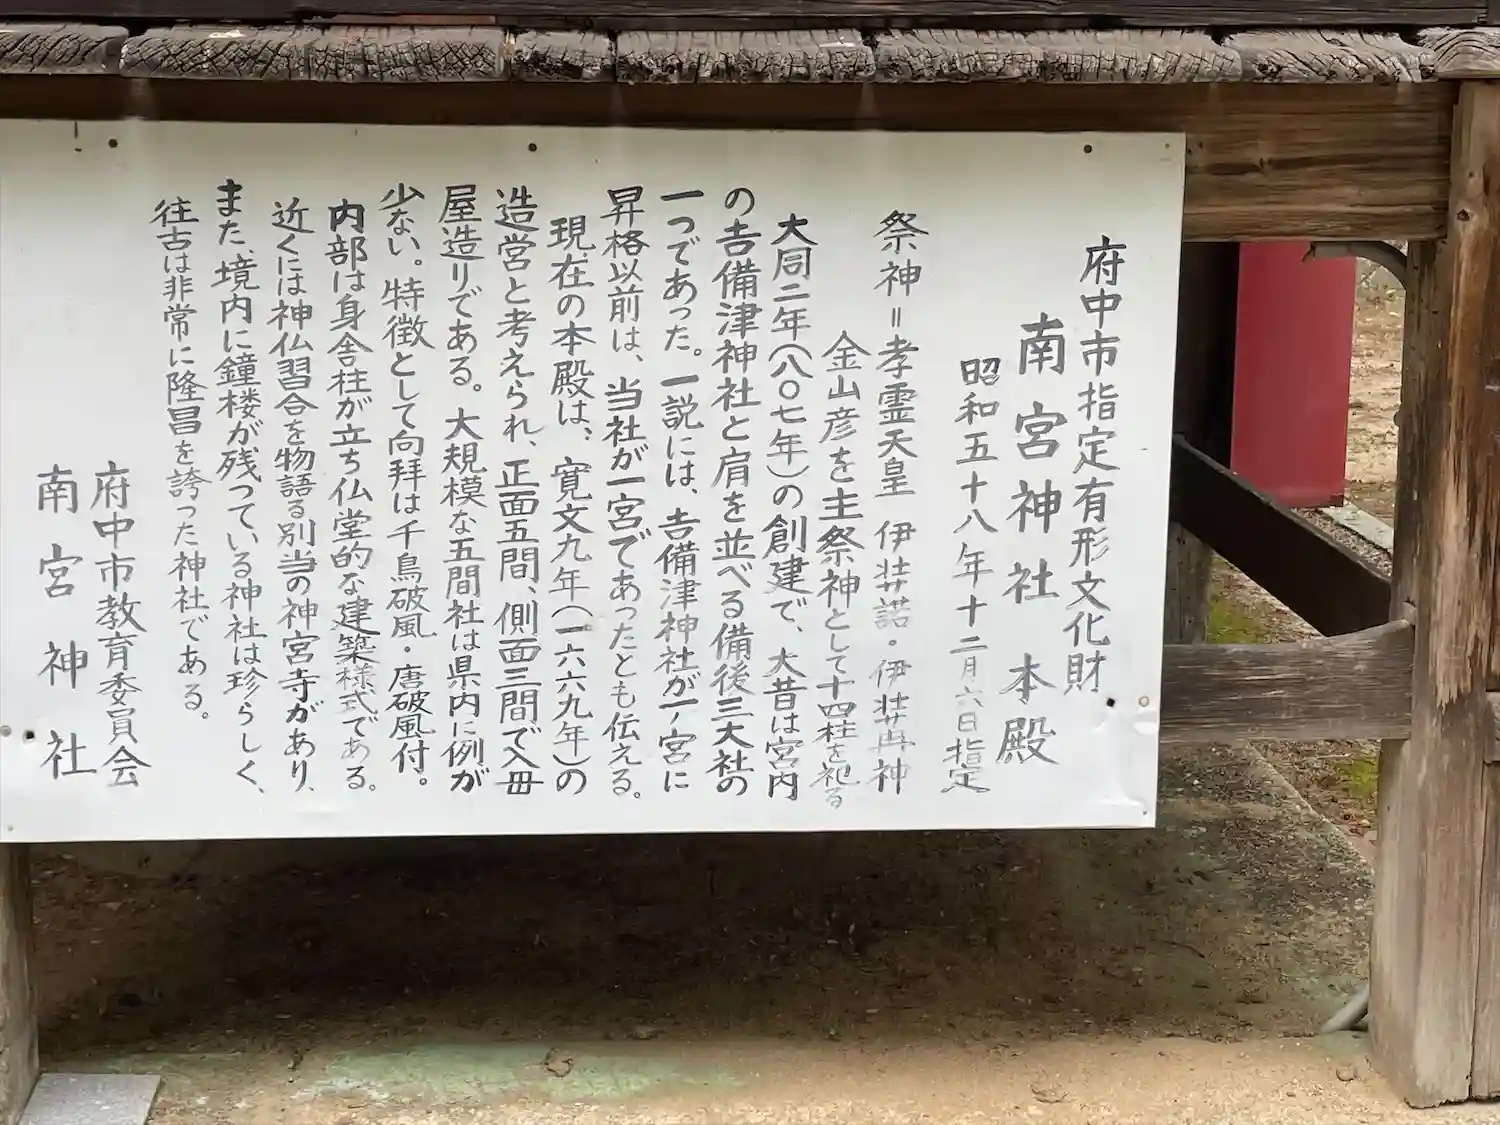 府中市指定有形文化財
南宮神社本殿
昭和五十八年十二月六日指定
祭神＝孝霊天皇　伊弉諾・伊弉冉神
金山彦を主祭神として十四柱を祀る
大同二年（八〇七年）の創建で、大昔は宮内
の吉備津神社と肩を並べる備後三大社の
一つであった。一説には、吉備津神社が一ノ宮に
昇格以前は、当社が一宮であったとも伝える。
現在の本殿は、寛文九年（一六六九年）の
造営と考えられ、正面五間、側面三間で入母
屋造りである。大規模な五間社は県内に例が
少ない。特徴として向拝は千鳥破風・唐破風付。
内部は身舎柱が立ち仏堂的な建築様式である。
近くには神仏習合を物語る別当の神宮寺があり、
また、境内に鐘楼が残っている神社は珍らしく、
往古は非常に隆昌を誇った神社である。
府中市教育委員会
南宮神社